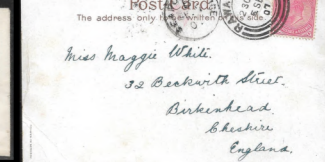 Post Card
The address only to be written on this side.
Miss Maggie White.
32 Beckwith Street.
Birkenhead.
Cheshire
England.